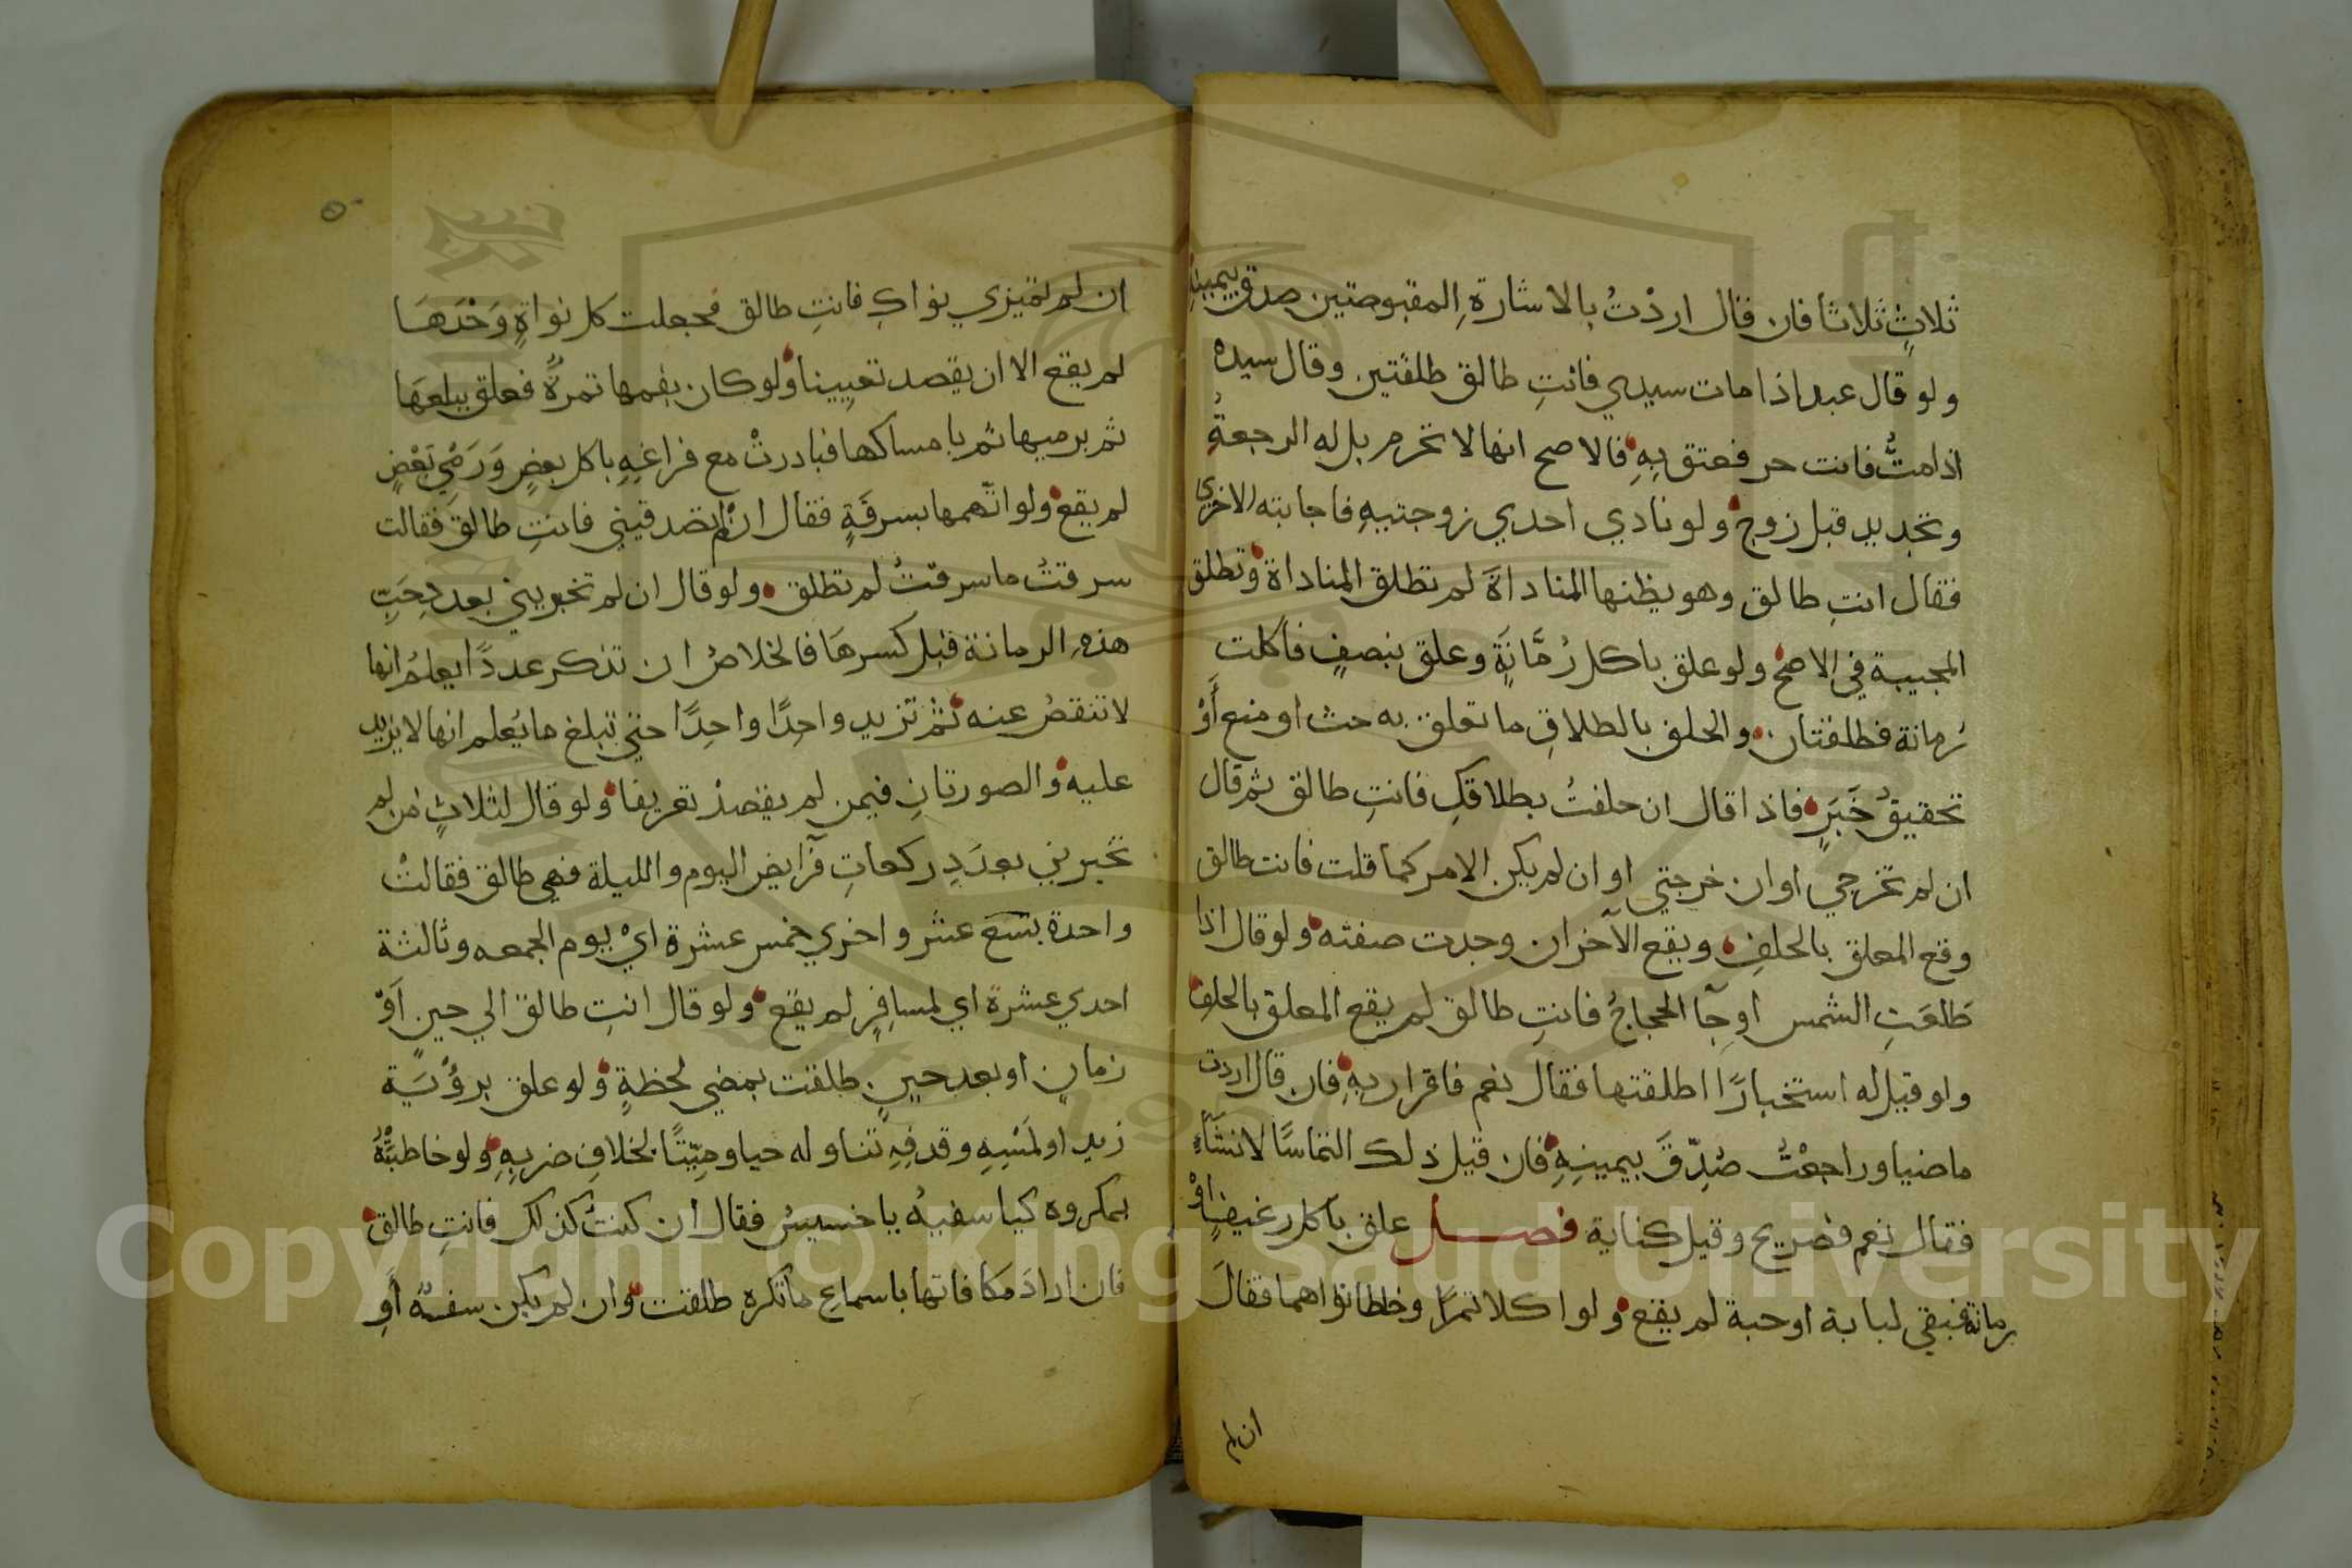 ثلاثٍ ثلاثا فان قال اردْتُ بالاشارةِ المقبوضتين صدق بيمينهِ
ولو قال عبد اذا مات سيدي فانتِ طالق طلقتين وقال سيده
اذا متُّ فانت حر فعتق بِهِ فالاصح انها لا تحرم بل له الرجعةُ
وتجديد قبل زوج ولو نادي احدي زوجتيهِ فاجابته الاخري
فقال انتِ طالق وهو يظنها المناداةَ لم تطلق المناداة وتطلق
المجيبة في الاصح ولو علق باكل رُمَّانَةٍ وعلق بنصفٍ فاكلت
رُمانة فطلقتان والحلف بالطلاقِ ما تعلق به حث او منع أَوْ
تحقيقُ خَبَرٍ فاذا قال ان حلفتُ بطلاقكِ فانتِ طالق ثم قال
ان لم تخرجي او ان خرجتي او ان لم يكن الامر كما قلت فانت طالق
وقع المعلق بالحلفِ ويقع الآخر ان وجدت صفته ولو قال اذا
طَلعَتِ الشمس او جآ الحجاجُ فانتِ طالق لم يقع المعلق بالحلفِ
ولو قيل له استخبارًا اطلقتها فقال نعم فاقرار بِهِ فان قال اردت
ماضيا وراجعْتُ صُدِّقَ بيمينِهِ فان قيل ذلك التماسًا لانشَاءٍ
فقال نعم فصريح وقيل كناية فصل علق باكل رغيفٍ اوْ
رمانة فبقي لبابة او حبة لم يقع ولو اكلا تمرًا وخلطا نواهما فقالَ
ان لم
ان لم تميزي نواكِ فانتِ طالق فجعلت كل نواةٍ وَحْدَهَا
لم يقع الا ان يقصد تعيينا ولو كان بفمها تمرةٌ فعلق ببلعهَا
ثم برميها ثم بامساكها فبادرتْ مع فراغِهِ باكل بعضٍ وَرَمْيِ بَعْضٍ
لم يقع ولو اتّهمها بسرقَةٍ فقال ان لم تصدقيني فانتِ طالق فقالت
سرقتُ ما سرقتُ لم تطلق ولو قال ان لم تخبريني بعددِ حَبِّ
هذهِ الرمانة قبل كسرهَا فالخلاصُ ان تذكر عددًا يعلمُ انها
لا تنقصُ عنه ثم تزيد واحِدًا واحِدًا حتي تبلغ ما يُعلم انها لا يزيد
عليه والصورتانِ فيمن لم يقصدْ تعريفا ولو قال لثلاثٍ من لم
تخبرني بعدَدِ ركعاتِ فرآيض اليوم والليلة فهي طالق فقالتْ
واحدة بسَبع عشر واخري خمس عشرة ايْ يوم الجمعه وثالثة
احدي عشرة اي لمسافِرٍ لم يقع ولو قال انتِ طالق الي حين اَوْ
زمانٍ او بعد حينٍ طلقت بمضي لحظةٍ ولو علق برؤْيَة
زيد او لَمْسِهِ وقدفِهِ تناوله حيا وميِّتًا بخلافِ ضربِهِ ولو خاطبتْهُ
بمكروه كيا سفيهُ يا خسيسُ فقال ان كنتُ كذلك فانتِ طالق
فان ارادَ مكافاتها باسماعِ ما تكره طلقت وان لم يكن سفهٌ أَوِ